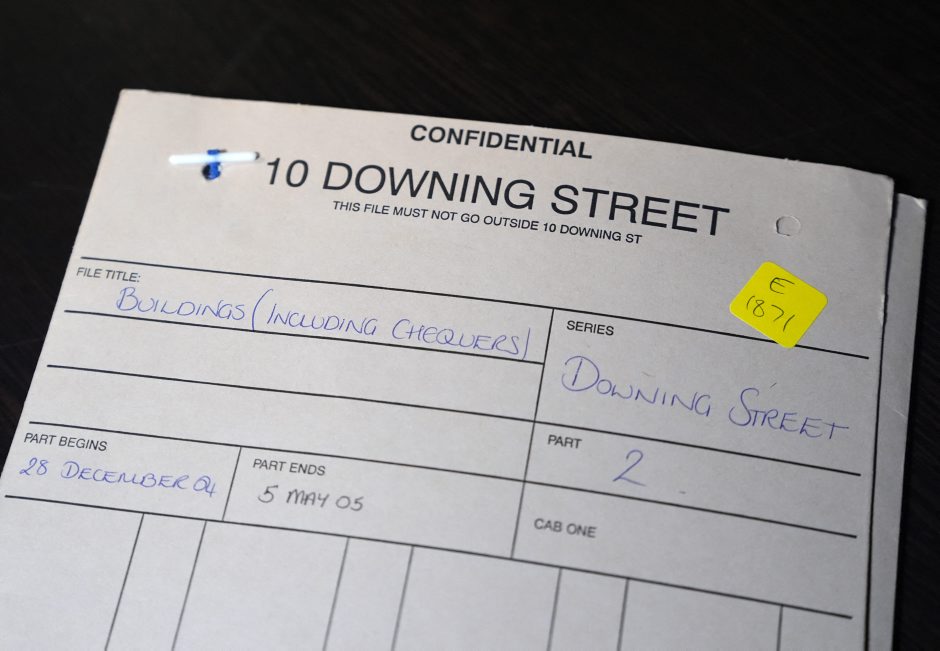 CONFIDENTIAL
10 DOWNING STREET
THIS FILE MUST NOT GO OUTSIDE 10 DOWNING ST
E
1871
FILE TITLE:
BUILDINGS (INCLUDING CHEQUERS)
SERIES
DOWNING STREET
PART
2
PART BEGINS
28 DECEMBER 04
PART ENDS
5 MAY 05
CAB ONE